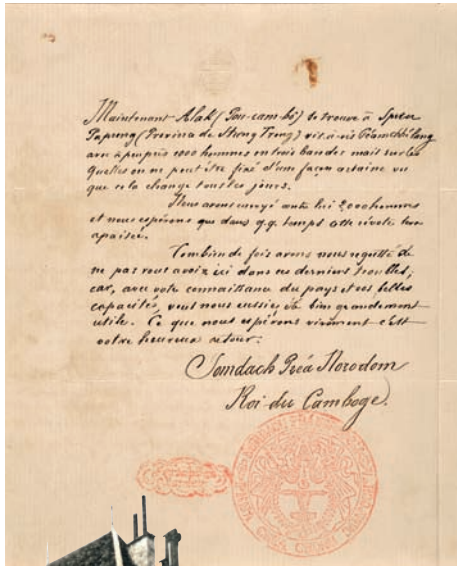 Maintenant Alak (Pou-cam-bô) se trouve à Speu
Papung (Province de Stung Treng) vis-à-vis Péamchhlang
avec à peu près 1000 hommes en trois bandes mais sur les
quelles on ne peut être fixé d'une façon certaine vu
que cela change tous les jours.
Nous avons envoyé contre lui 2,000 hommes
et nous espérons que dans q.q. temps cette révolte sera
apaisée.
Combien de fois avons nous regretté de
ne pas vous avoir ici dans ces derniers troubles;
car, avec votre connaissance du pays et vos belles
capacités, vous nous eussiez été bien grandement
utile. Ce que nous espérons vivement c'est
votre heureux retour.
Somdach Préa Norodom
Roi du Camboge.